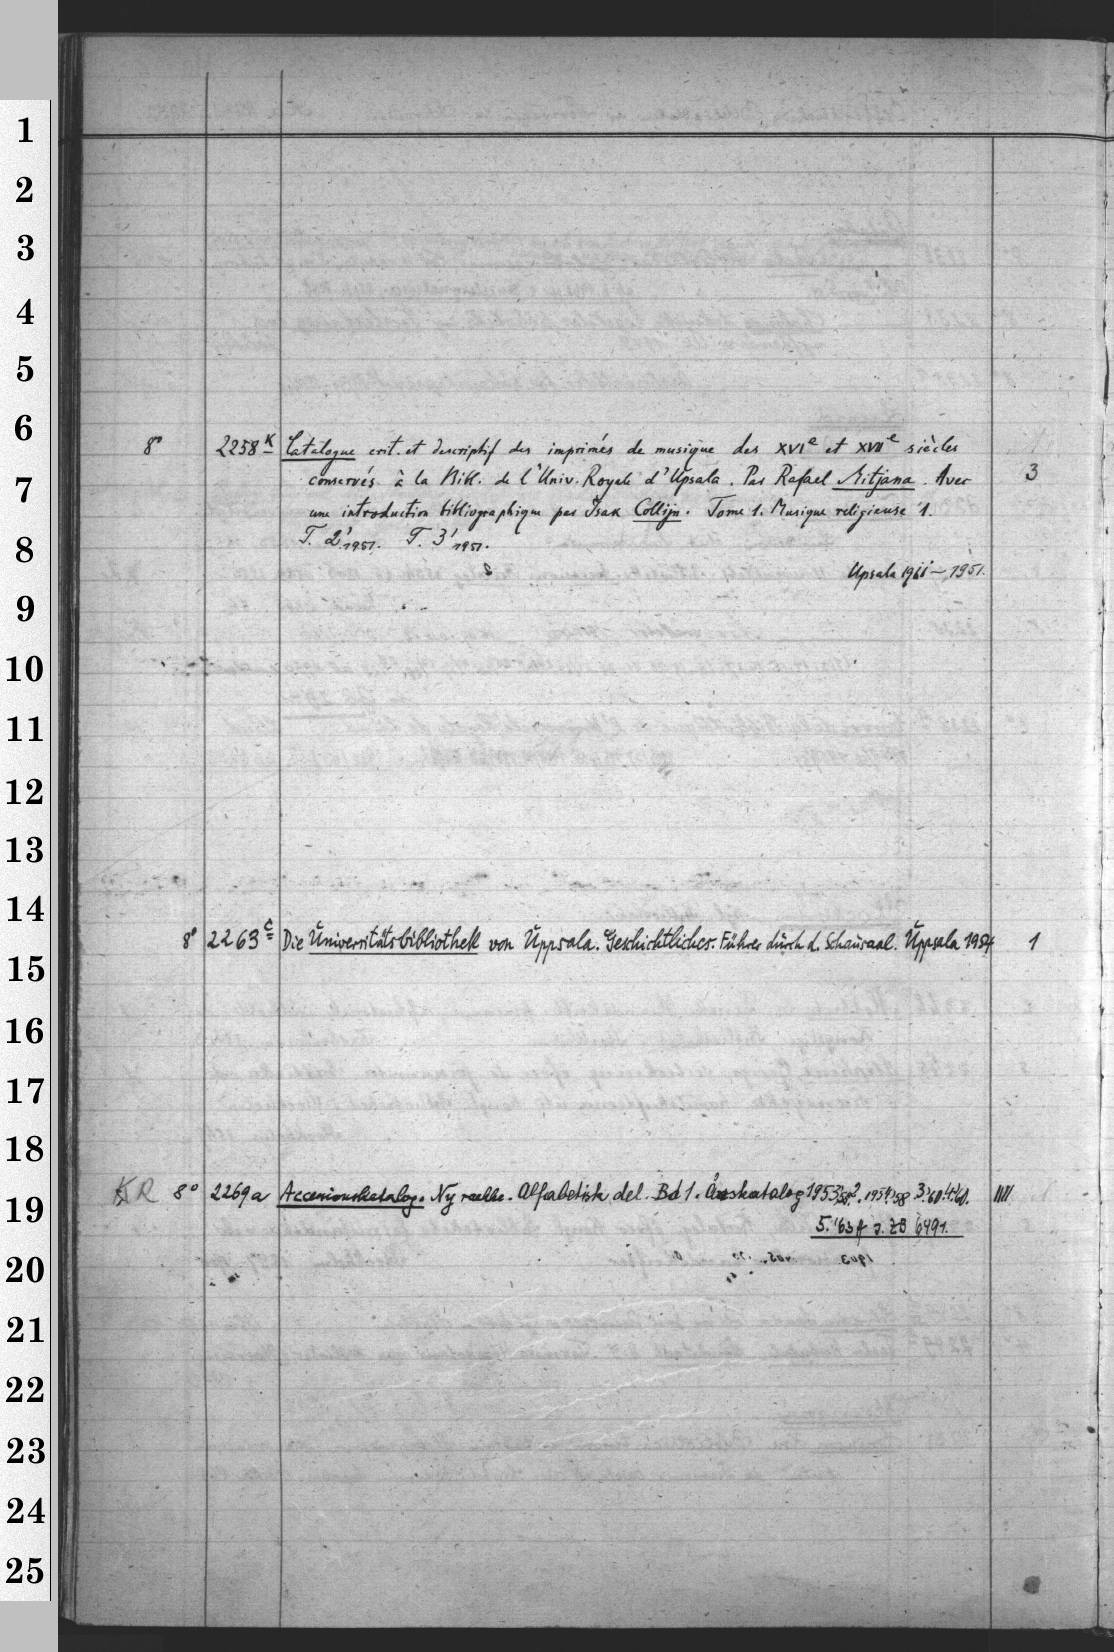 1
2
3
4
5
6
8° 2258 K Catalogue crit. et descriptif des imprimés de musique des XVIe et XVIIe siècles
conservés à la Bibl. de l'Univ. Royale d'Upsala. Par Rafael Mitjana. Avec 3
7
une introduction bibliographique par Isak Collijn. Tome 1. Musique religieuse 1.
T. 2' 1951. T. 3' 1951.
8
Upsala 1911-1951.
9
10
11
12
13
14
8° 2263 c Die Universitätsbibliothek von Uppsala. Geschichtliches. Führer durch d. Schausaal. Uppsala 1954 1
15
16
17
18
KR 8° 2269a Accessionskatalog. Ny raekke. Alfabetisk del. Bd 1. 1953 3.'60. 4.'60. IIIII
19
5. '63ff s. ZB 6491.
20
21
22
23
24
25